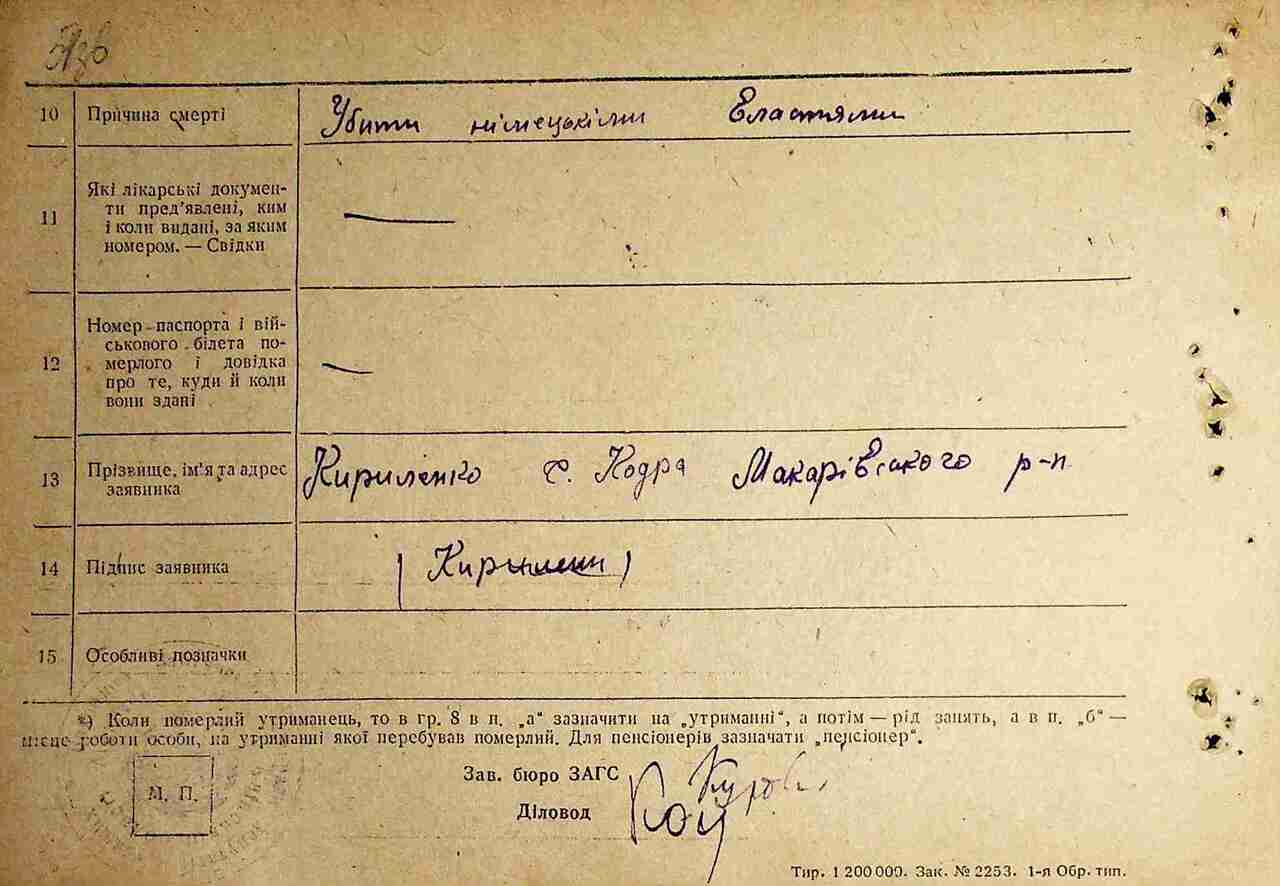 10 Причина смерті Убити німецькіми Властями
11 Які лікарські докумен-
ти пред'явлені, ким
і коли видані, за яким
номером. — Свідки
12 Номер паспорта і вій-
ськового білета по-
мерлого і довідка
про те, куди й коли
вони здані
13 Прізвище, ім'я та адрес
заявника
Кириленко с. Кодра Макарівського р-н
14 Підпис заявника
15 Особливі позначки
*) Коли померлий утриманець, то в гр. 8 в п. „а“ зазначити на „утриманні“, а потім — рід занять, а в п. „б“ —
місце роботи особи, на утриманні якої перебував померлий. Для пенсіонерів зазначати „пенсіонер“.
М. П.
Зав. бюро ЗАГС
Діловод
Тир. 1 200 000. Зак. № 2253. 1-я Обр. тип.